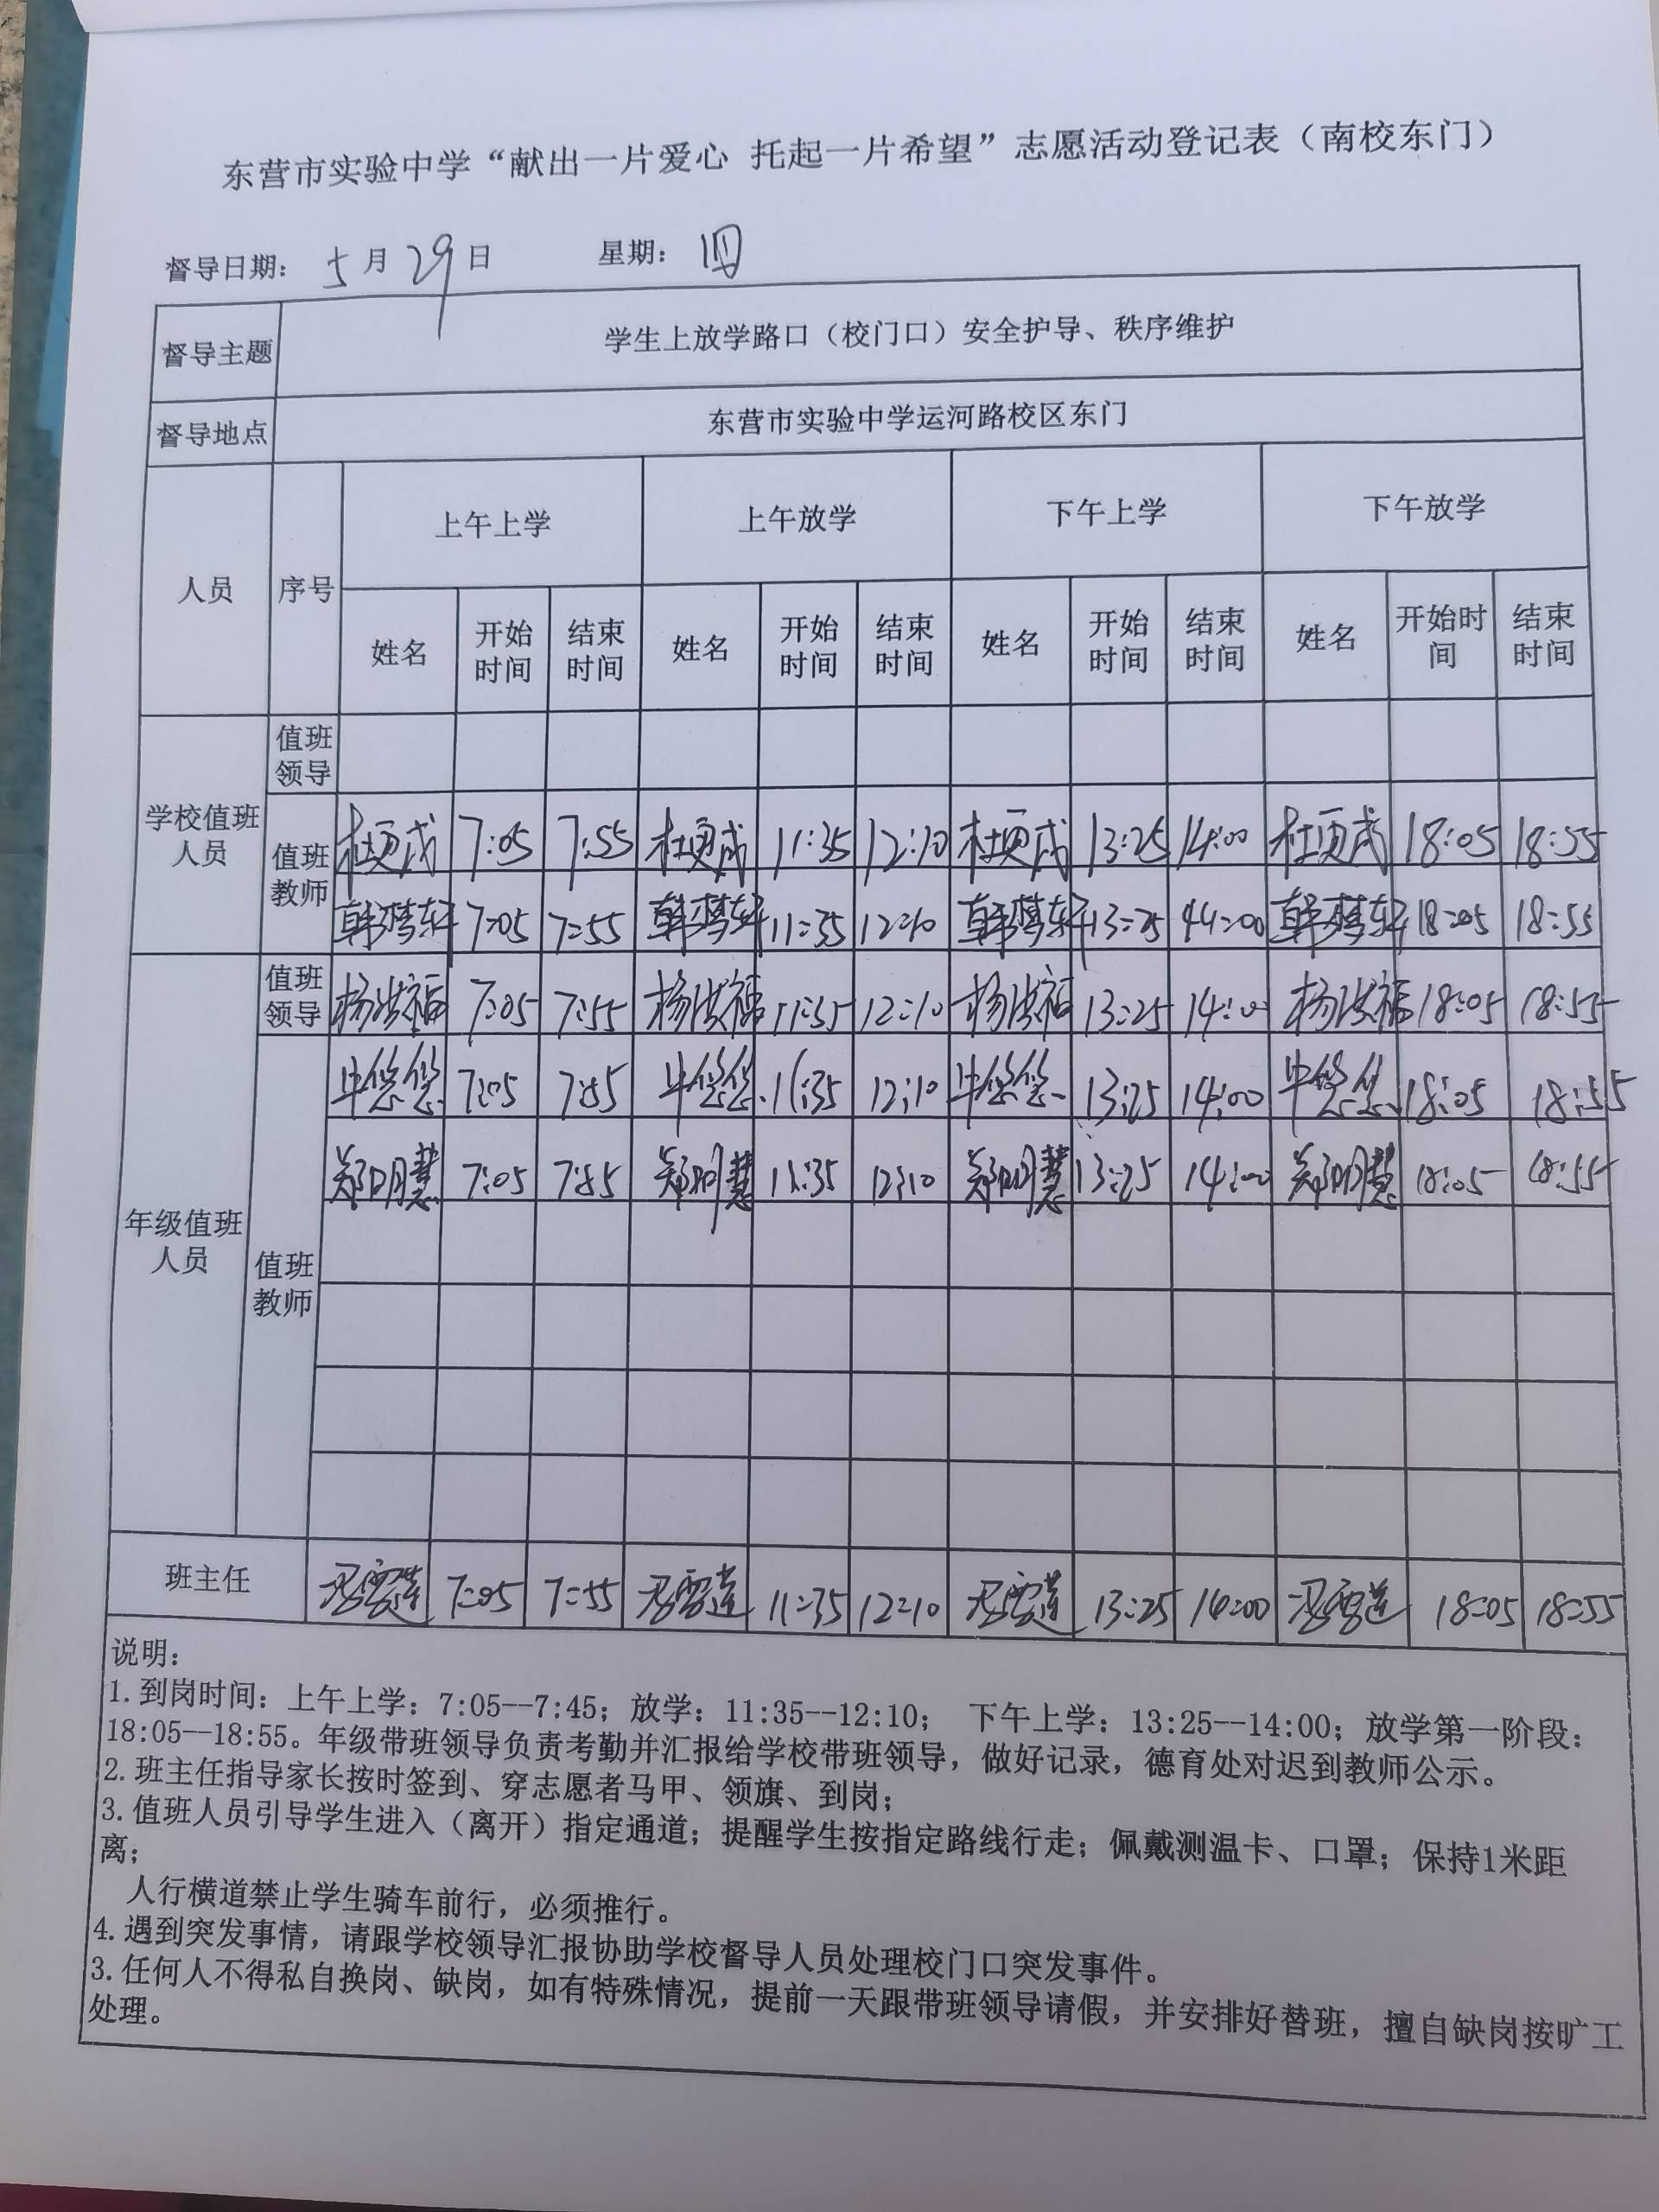 东营市实验中学“献出一片爱心 托起一片希望”志愿活动登记表（南校东门）
督导日期： 5月29日 星期：四
督导主题 学生上放学路口（校门口）安全护导、秩序维护
督导地点 东营市实验中学运河路校区东门
人员 序号 上午上学 上午放学 下午上学 下午放学
姓名 开始时间 结束时间 姓名 开始时间 结束时间 姓名 开始时间 结束时间 姓名 开始时间 结束时间
学校值班人员 值班领导
值班教师 7:05 7:55 11:35 12:10 13:25 14:00 18:05 18:55
韩梦轩 7:05 7:55 韩梦轩 11:35 12:10 韩梦轩 13:25 14:00 韩梦轩 18:05 18:55
年级值班人员 值班领导 杨洪福 7:05 7:55 杨洪福 11:35 12:10 杨洪福 13:25 14:00 杨洪福 18:05 18:55
值班教师 牛悠悠 7:05 7:55 牛悠悠 11:35 12:10 牛悠悠 13:25 14:00 牛悠悠 18:05 18:55
郑明慧 7:05 7:55 郑明慧 11:35 12:10 郑明慧 13:25 14:00 郑明慧 18:05 18:55
班主任 7:05 7:55 11:35 12:10 13:25 14:00 18:05 18:55
说明：
1.到岗时间：上午上学：7:05--7:45；放学：11:35--12:10； 下午上学：13:25--14:00；放学第一阶段：
18:05--18:55。年级带班领导负责考勤并汇报给学校带班领导，做好记录，德育处对迟到教师公示。
2.班主任指导家长按时签到、穿志愿者马甲、领旗、到岗；
3.值班人员引导学生进入（离开）指定通道；提醒学生按指定路线行走；佩戴测温卡、口罩；保持1米距
离；
人行横道禁止学生骑车前行，必须推行。
4.遇到突发事情，请跟学校领导汇报协助学校督导人员处理校门口突发事件。
3.任何人不得私自换岗、缺岗，如有特殊情况，提前一天跟带班领导请假，并安排好替班，擅自缺岗按旷工
处理。